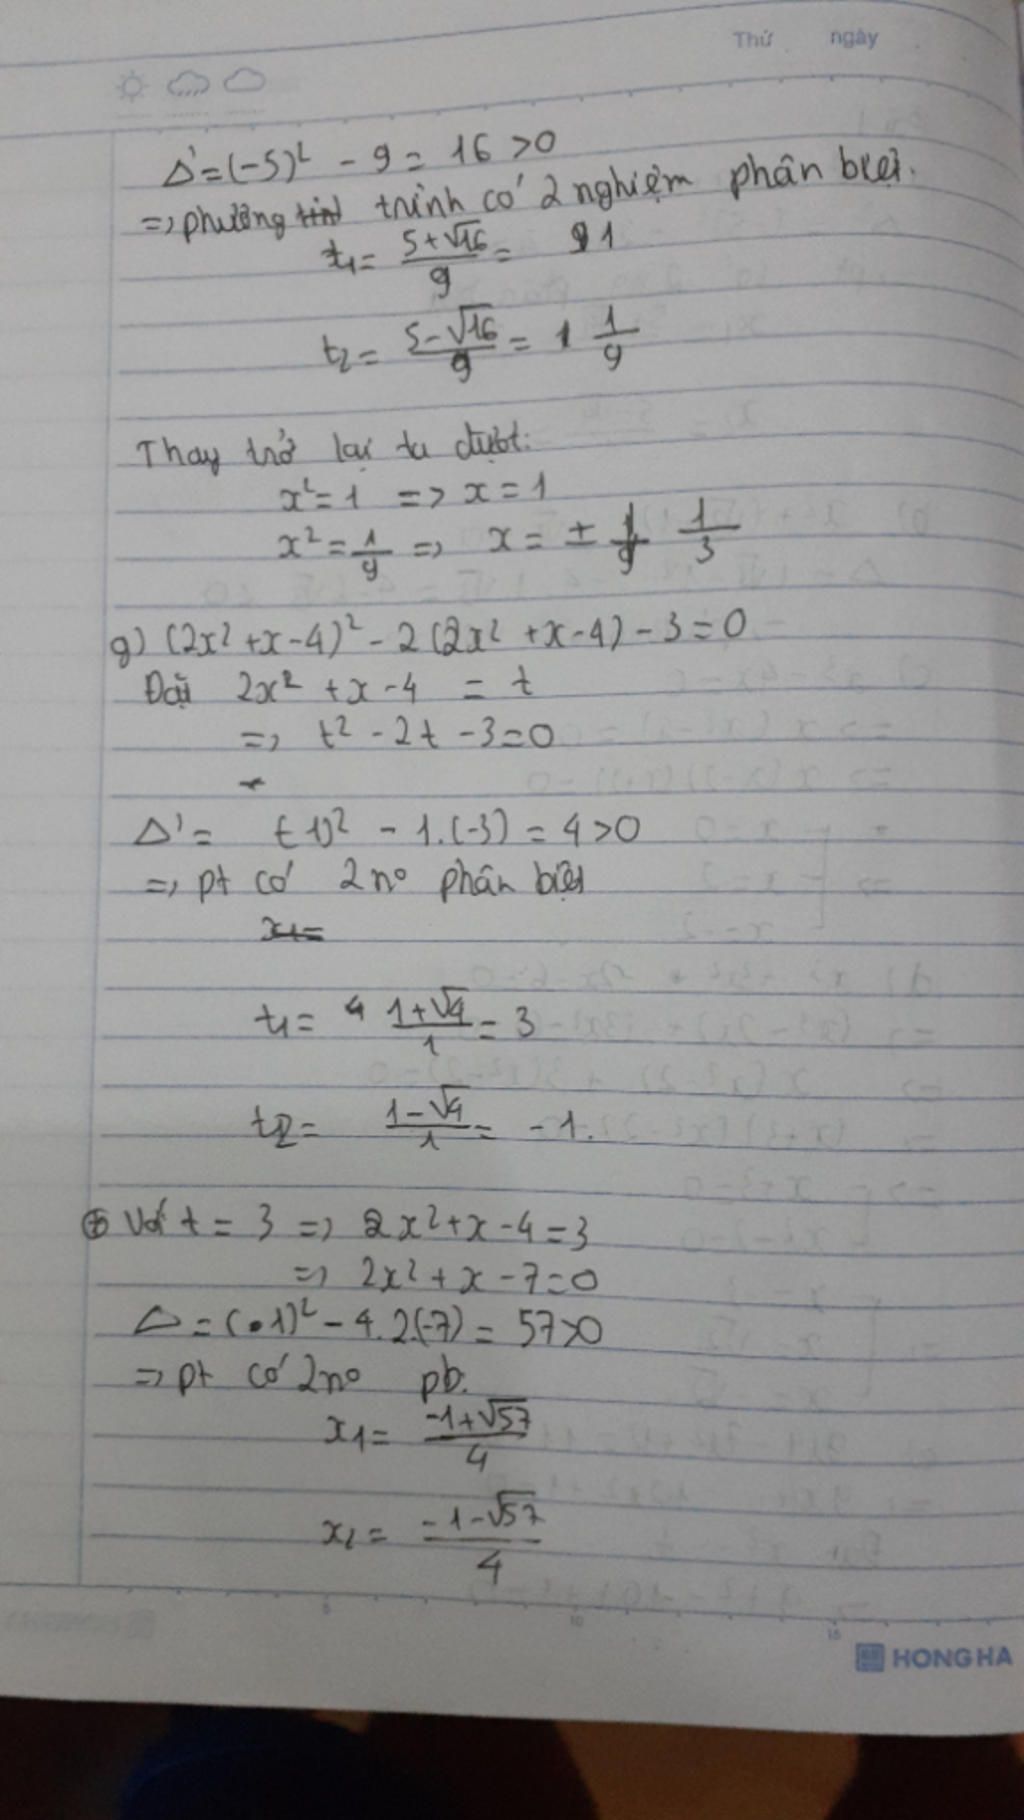 Thứ ngày
Δ' = (-5)² - 9 = 16 > 0
=> phương trình có 2 nghiệm phân biệt.
t₁ = (5+√16)/9 = 1
t₂ = (5-√16)/9 = 1/9
Thay trở lại ta được:
x² = 1 => x = 1
x² = 1/9 => x = ± 1/3
g) (2x² + x - 4)² - 2(2x² + x - 4) - 3 = 0
Đặt 2x² + x - 4 = t
=> t² - 2t - 3 = 0
Δ' = (-1)² - 1.(-3) = 4 > 0
=> pt có 2 n⁰ phân biệt
t₁ = (1+√4)/1 = 3
t₂ = (1-√4)/1 = -1.
⊕ Với t = 3 => 2x² + x - 4 = 3
=> 2x² + x - 7 = 0
Δ = (1)² - 4.2(-7) = 57 > 0
=> pt có 2 n⁰ pb.
x₁ = (-1+√57)/4
x₂ = (-1-√57)/4
5 10 15
HONG HA